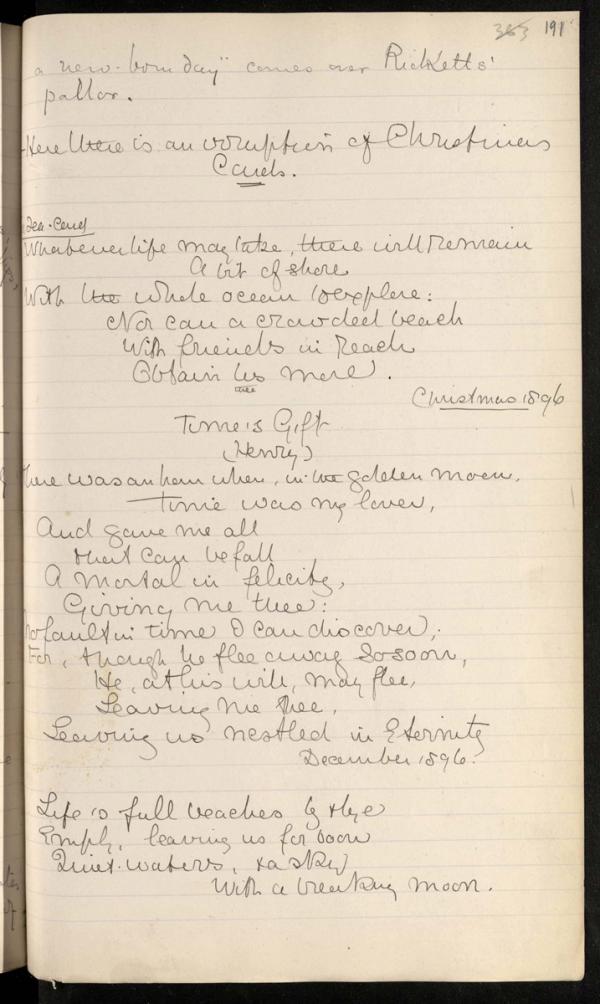 383 191
a new-born day" comes over Ricketts'
pallor.
Here there is an irruption of Christmas
Cards.
Sea-card
Whatever life may take, there will remain
A bit of shore
With the whole ocean to explore:
Nor can a crowded beach
With friends in reach
Obtain us more.
thee
Christmas 1896
Time's Gift
(Henry)
There was an hour when, in the golden moon,
Time was my lover,
And gave me all
that can befall
A mortal in felicity,
Giving me thee:
No fault in time I can discover;
For, though he flee away so soon,
He, at his will, may flee,
Leaving me thee,
Leaving us nestled in Eternity
December 1896.
Life is full beaches by & bye
Empty, leaving us for boon
Quiet waters, & a sky
With a breaking moon.